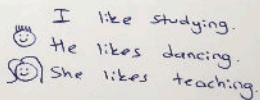 I like studying.
He likes dancing.
She likes teaching.